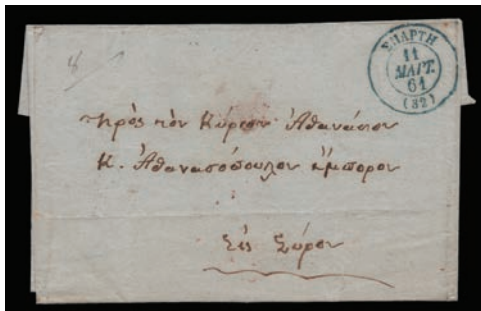 ΣΠΑΡΤΗ
11
ΜΑΡΤ.
61
(32)
Πρὸς τὸν Κύριον Ἀθανάσιον
Κ. Ἀθανασόπουλον ἔμπορον
Εἰς Σύρον